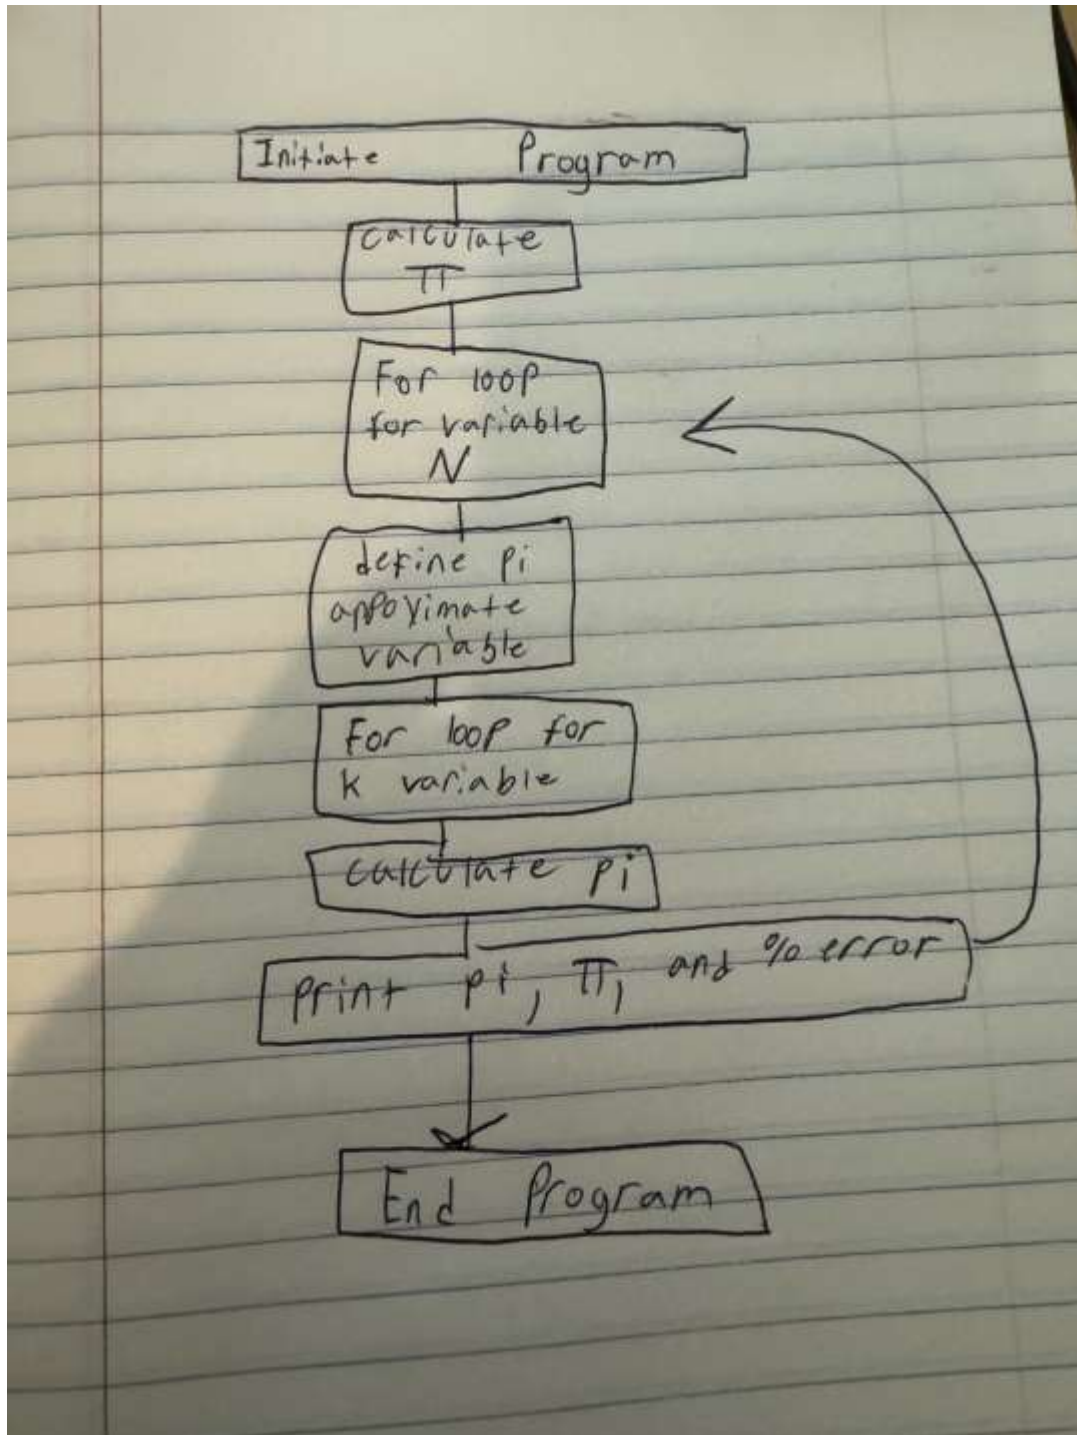 Initiate Program
calculate
π
For loop
for variable
N
define pi
appoximate
variable
For loop for
k variable
calculate pi
print pi, π, and % error
End Program